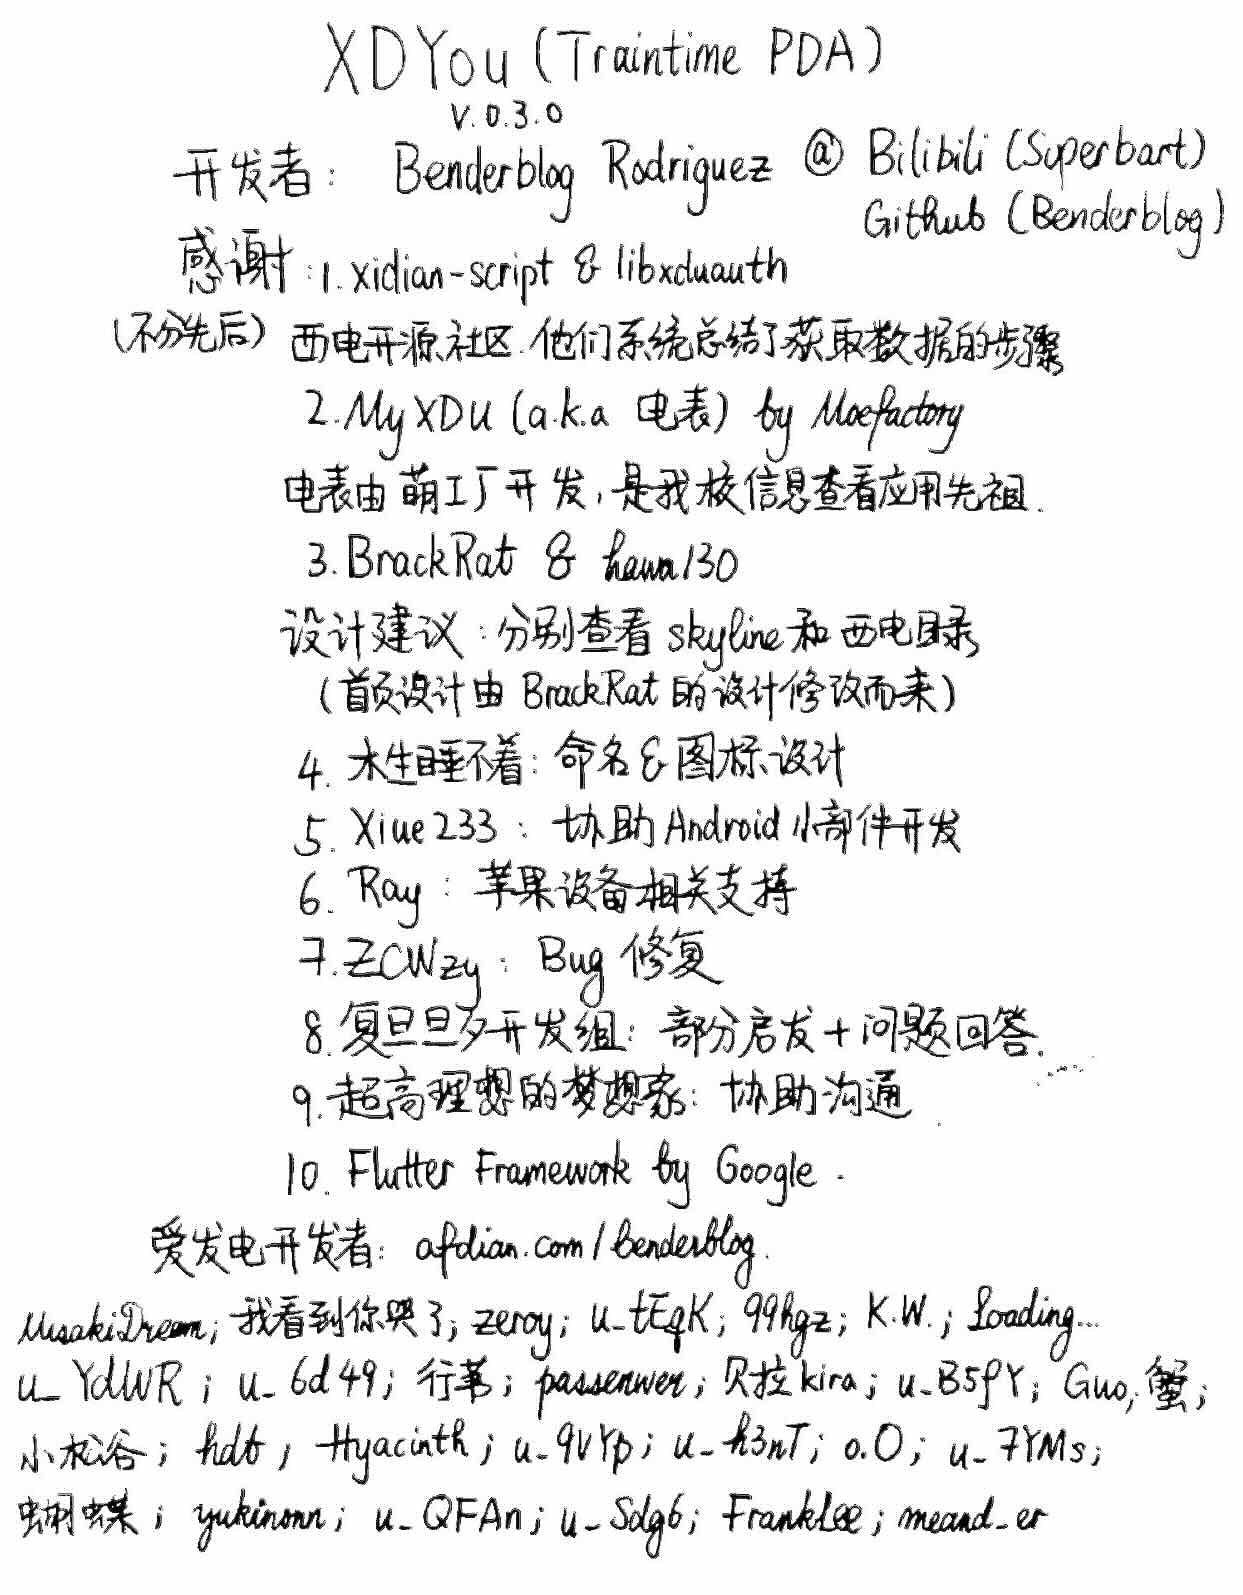 XDYou (Traintime PDA)
v.0.3.0
开发者: Benderblog Rodriguez @ Bilibili (Superbart)
Github (Benderblog)
感谢:1. xidian-script & libxduauth
(不分先后) 西电开源社区.他们系统总结了获取数据的步骤
2.MyXDU (a.k.a 电表) by Moefactory
电表由萌工厂开发,是我校信息查看应用先祖.
3.BrackRat & hawa130
设计建议:分别查看skyline和西电目录
(首页设计由BrackRat的设计修改而来)
4. 木生睡不着:命名&图标设计
5. Xiue233: 协助Android小部件开发
6. Ray: 苹果设备相关支持
7.ZCWzy: Bug 修复
8.复旦旦夕开发组: 部分启发+问题回答.
9.超高理想的梦想家: 协助沟通
10. Flutter Framework by Google.
爱发电开发者: afdian.com/benderblog.
MisakiDream; 我看到你哭了; zeroy; u_tEqK; 99hgz; K.W.; Loading...
u_YdWR; u_6d49; 行苇; passenwer; 贝拉kira; u_B5fY; Guo; 蟹;
小松谷; hdt; Hyacinth; u_9VYp; u_h3nT; o.O; u_7YMs;
蝴蝶; yukinonn; u_QFAn; u_Sdg6; FrankLee; meand_er